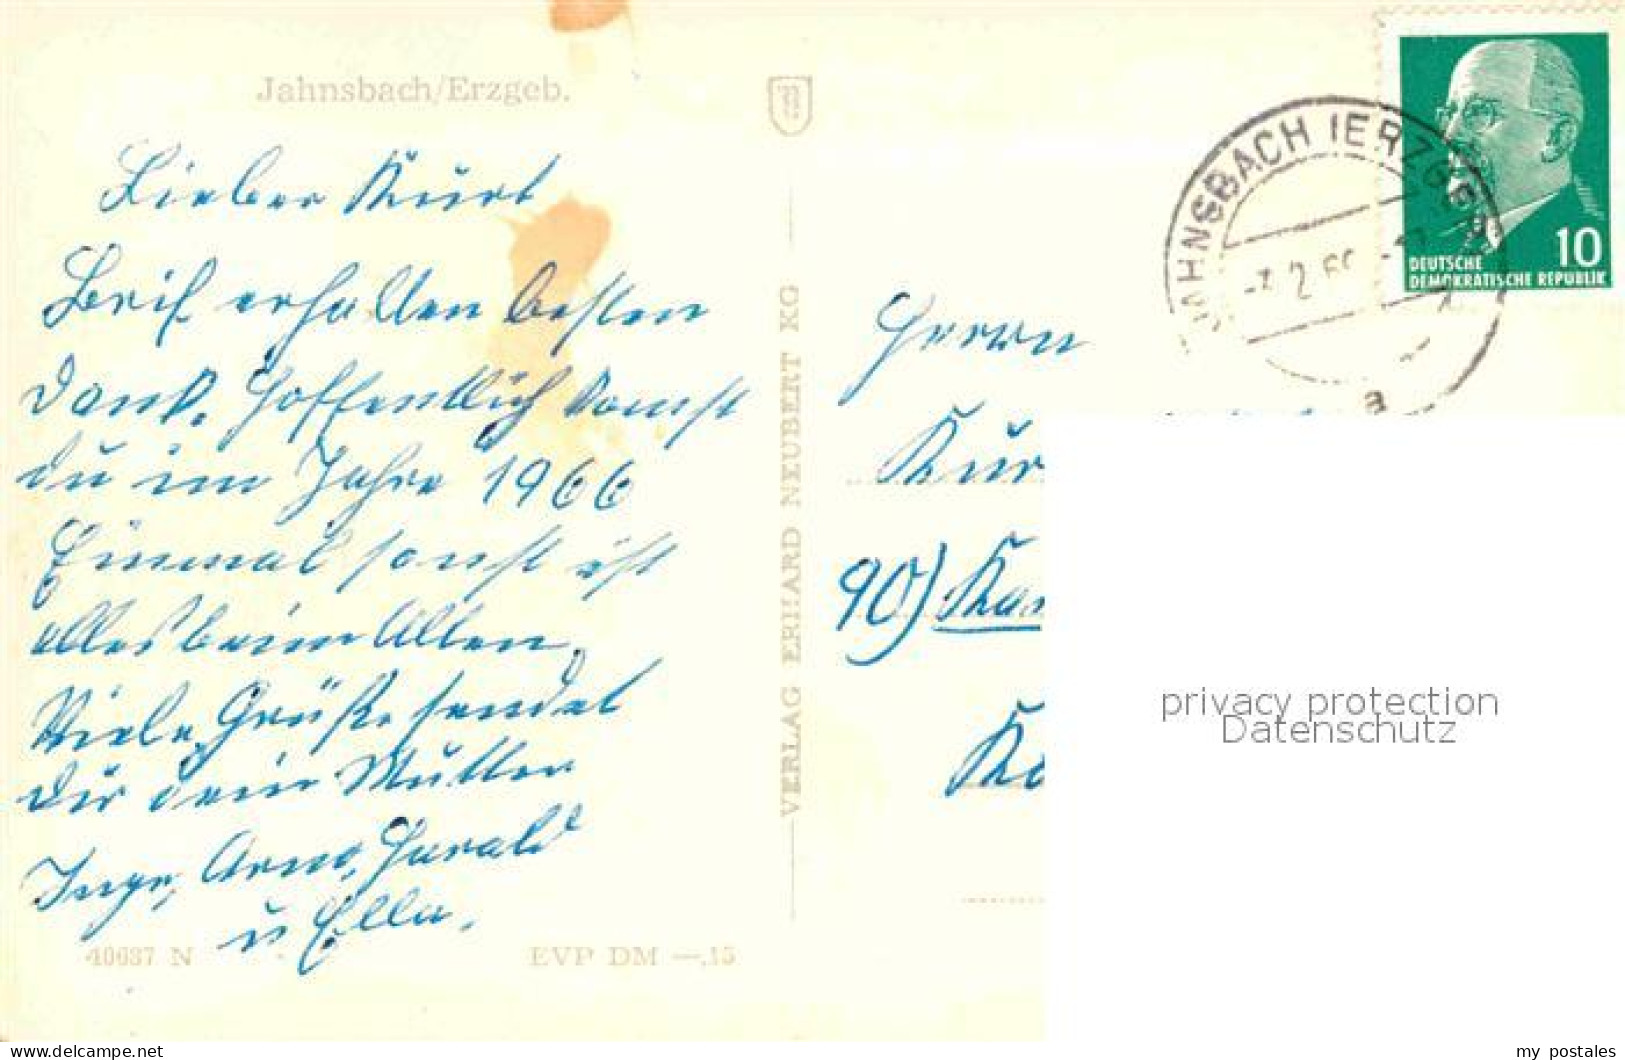 Jahnsbach/Erzgeb.
Lieber Kurt
Brif erhalten besten
Dank. Hoffentlich komst
du im Jahre 1966
Einmal sonst ist
alles beim Alten.
Viele Grüße sendet
Dir dein Mutter
Inge, Arno, Harald
u Ella.
40637 N
EVP DM —.15
VERLAG ERHARD NEUBERT KG
JAHNSBACH (ERZGEB
2.66
a
10
DEUTSCHE
DEMOKRATISCHE REPUBLIK
Herrn
Kur
90)
privacy protection
Datenschutz
my postales
delcampe.net